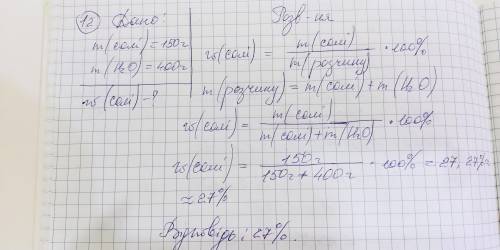 12 Дано:
m(солі) = 150г
m(H₂O) = 400г
w(солі) - ?
Розв-ня
w(солі) = m(солі) / m(розчину) · 100%
m(розчину) = m(солі) + m(H₂O)
w(солі) = m(солі) / m(солі) + m(H₂O) · 100%
w(солі) = 150г / 150г + 400г · 100% = 27,27%
≈ 27%
Відповідь: 27%.